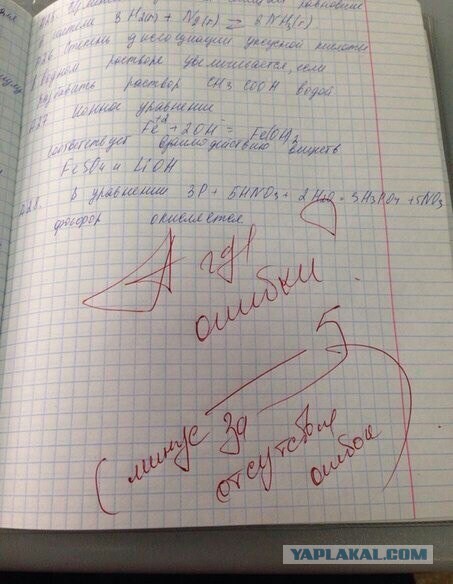 3 H2(г) + N2(г) ⇄ 2NH3(г)
Степень диссоциации уксусной кислоты
в водном растворе увеличивается, если
разбавить раствор CH3COOH водой
027 Ионное уравнение
Fe+2 + 2OH- = Fe(OH)2
соответствует взаимодействию веществ
FeSO4 и LiOH
028. В уравнении 3P + 5HNO3 + 2H2O = 3H3PO4 + 5NO
фосфор окисляется
А где
ошибки
5
(минус за
отсутствие
ошибок)
YAPLAKAL.COM